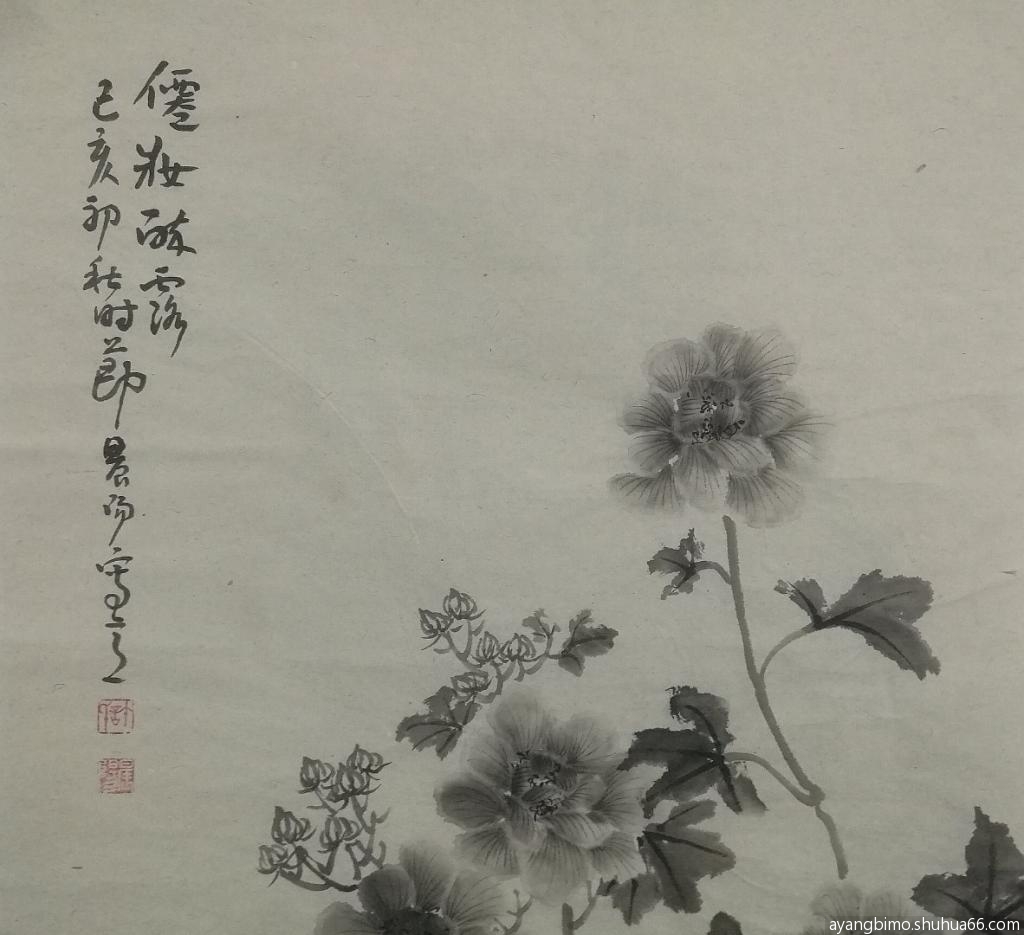 僊妝酥露
己亥初秋时節晨陽寫之
ayangbimo.shuhua66.com